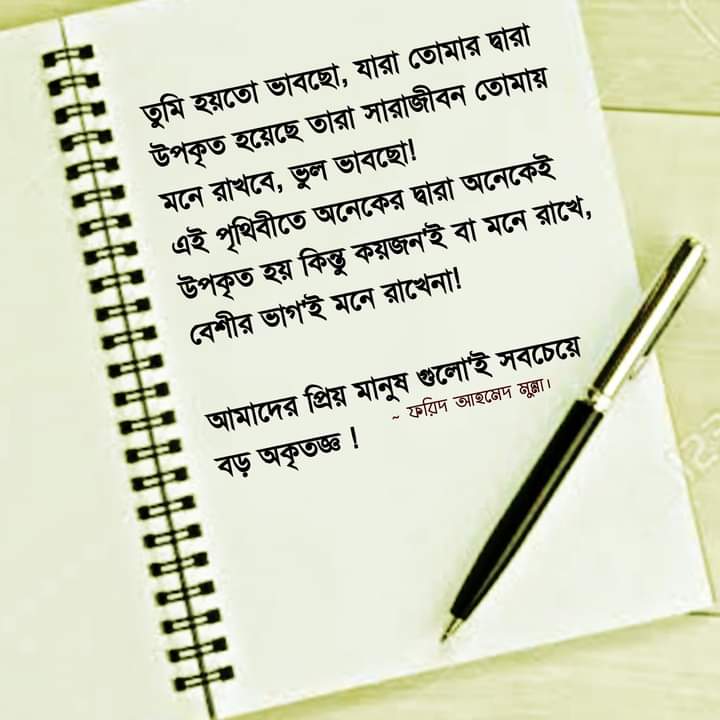 তুমি হয়তো ভাবছো, যারা তোমার দ্বারা
উপকৃত হয়েছে তারা সারাজীবন তোমায়
মনে রাখবে, ভুল ভাবছো!
এই পৃথিবীতে অনেকের দ্বারা অনেকেই
উপকৃত হয় কিন্তু কয়জন'ই বা মনে রাখে,
বেশীর ভাগ'ই মনে রাখেনা!
আমাদের প্রিয় মানুষ গুলো'ই সবচেয়ে
বড় অকৃতজ্ঞ !
~ ফরিদ আহমেদ মুন্না।